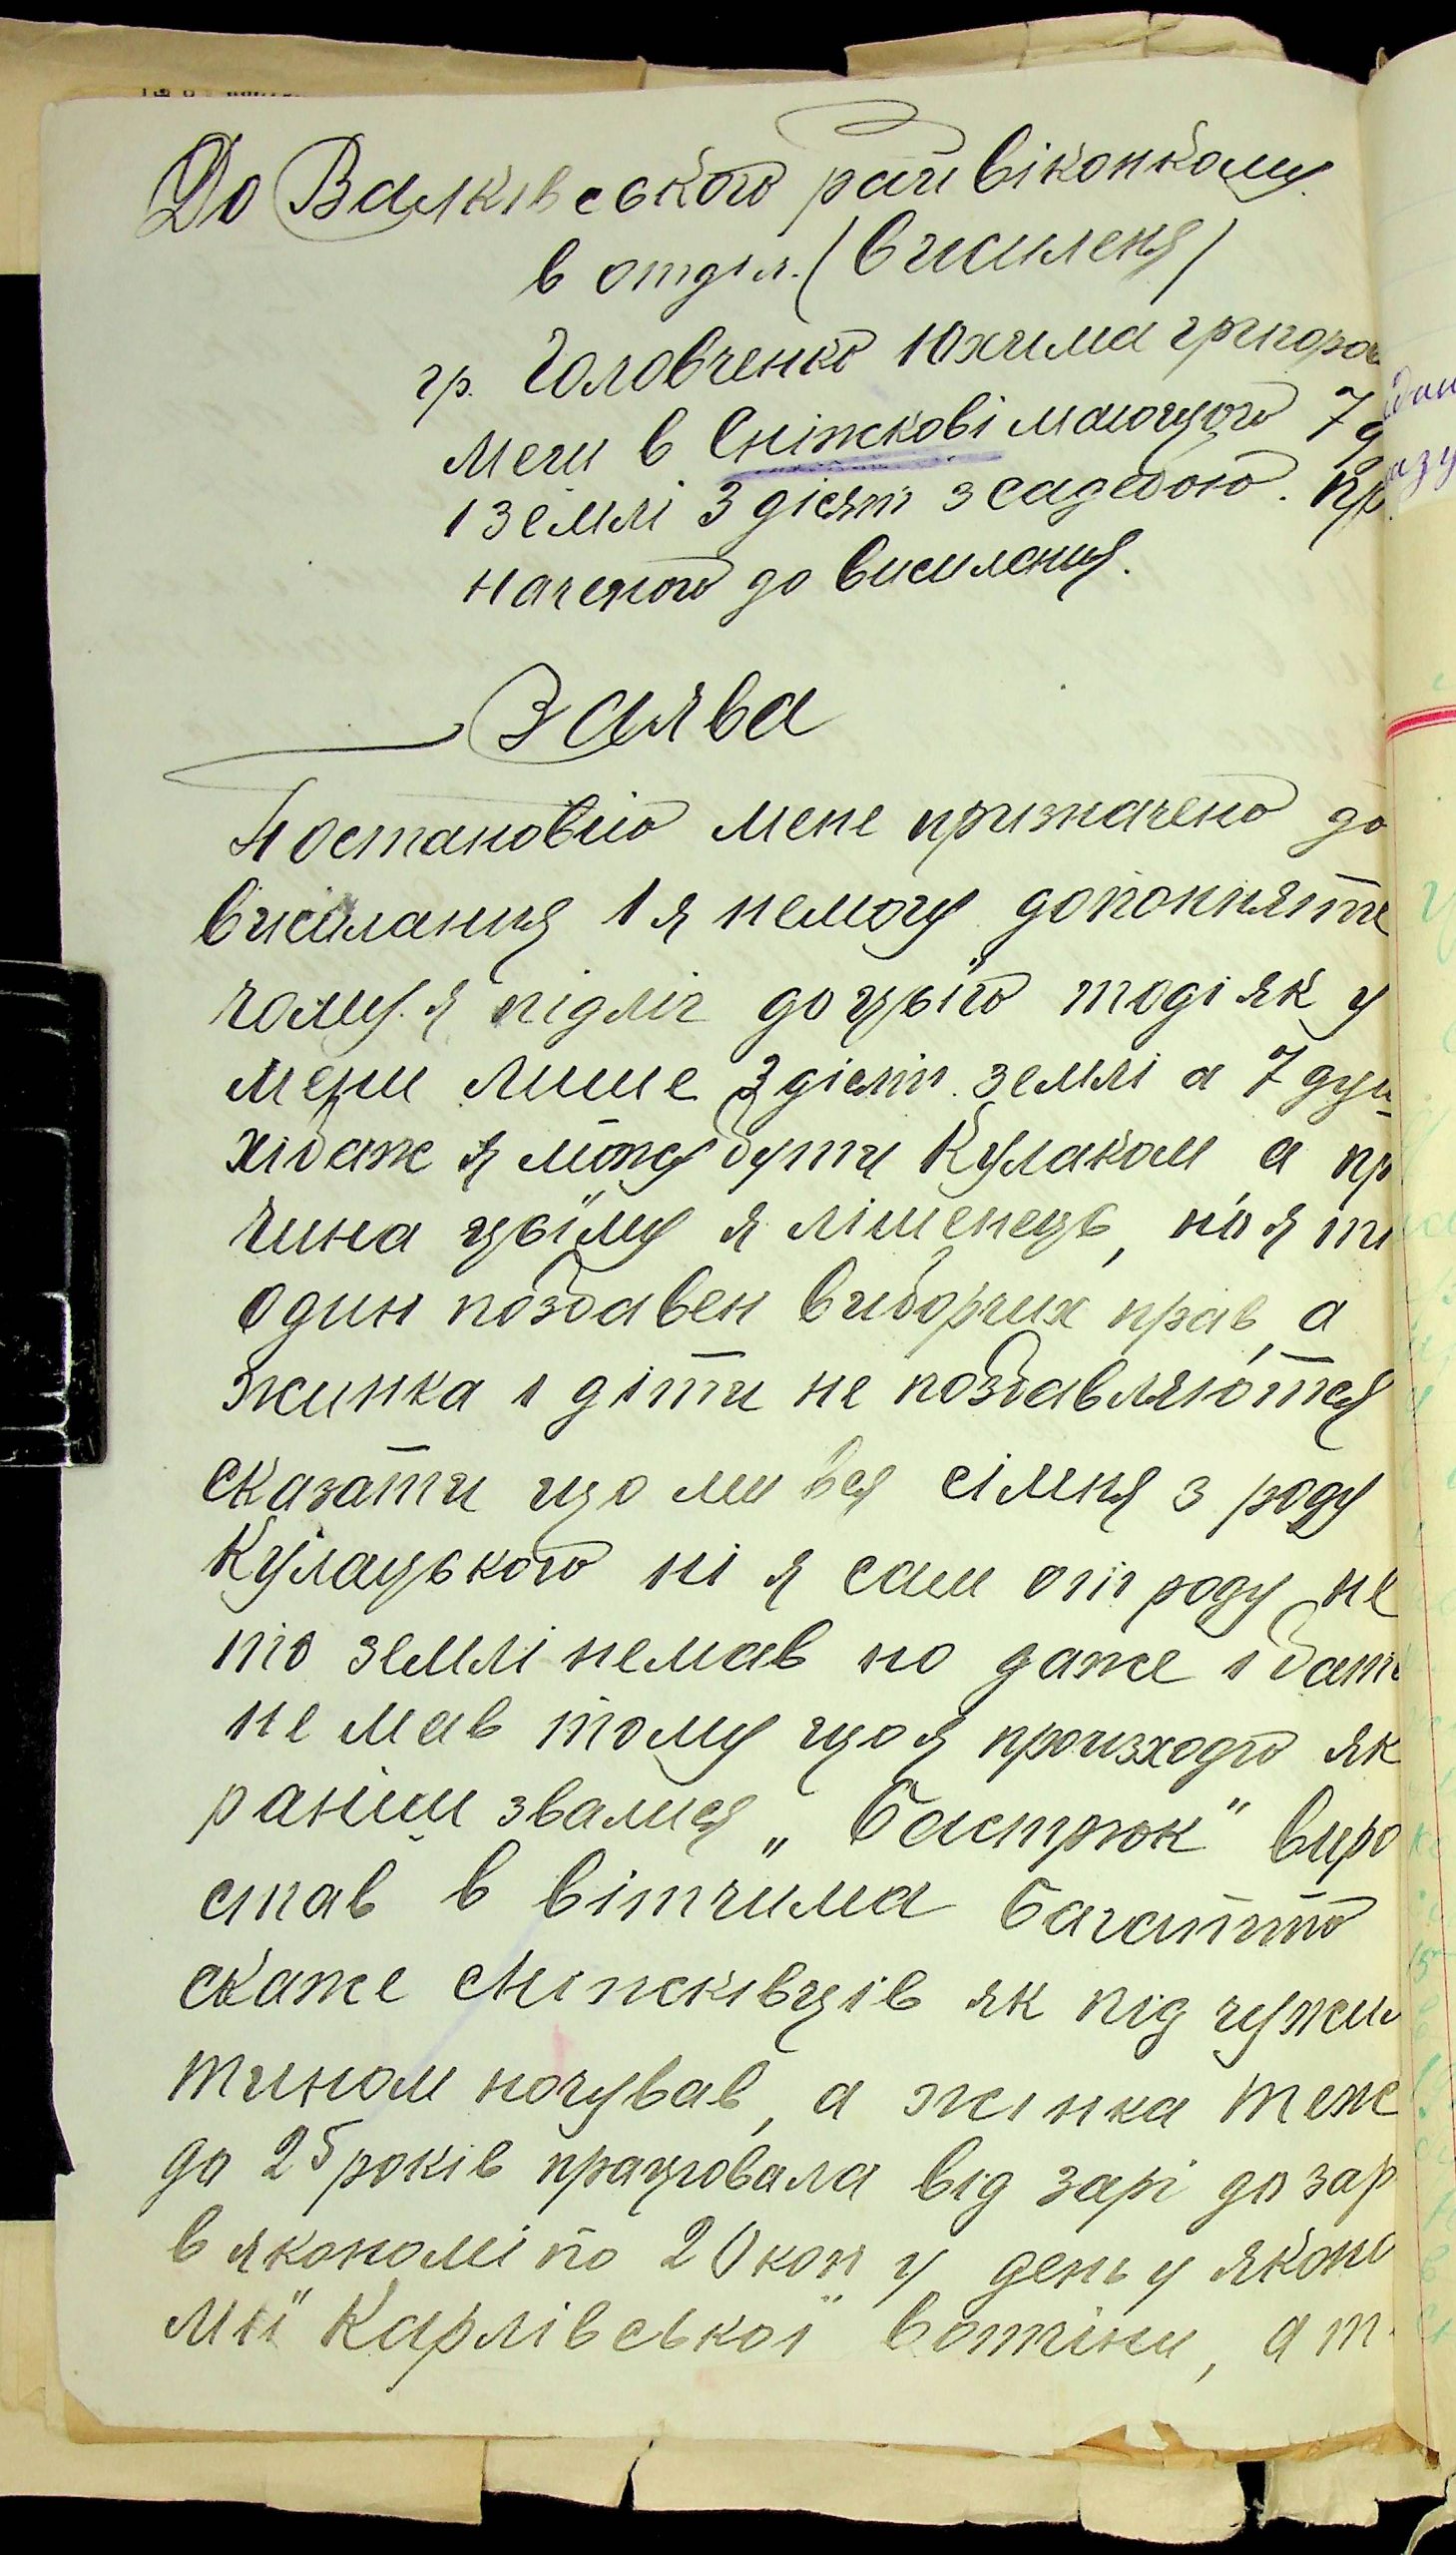 До Валківського райвіконкому
в отділ. (Вчисиленя)
гр. Головченко Юхима григоров
мечи в Сніжкові маючого 7 д
і землі 3 дісят з садебою. пр
наченого до висиления.
Заява
Постановїю мене призначено до
вчисилания і я немогу допонняття
чому я підліг доцьїго тоді як у
мени лише 3 дісят. землі а 7 душ
хібаж я можу бути Кулаком а при
чина цьїму я лішенець, но я ти
один позбавен виборчих прав, а
жинка і діти не позбавляются
сказати що ми вся сімня з роду
Кулацького ні я сам отіг роду не
то землі немав но даже і батька
не мав тому що я произходю як
раніш звалися „Бастрюк" виро
став в вітчима Багатьтю
скаже сніжківців як під чужим
тином ночував, а жінка теж
до 25 років працювала від зарі до зар
в якономі по 20 коп у день у яконо
мії Карлівської вотчіни, а т